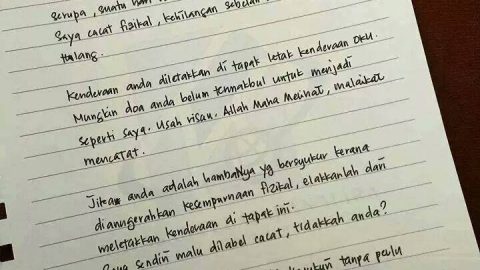 serupa, suatu hari
Saya cacat fizikal, kehilangan sebelah
tulang.
Kenderaan anda diletakkan di tapak letak kenderaan OKU.
Mungkin doa anda belum termakbul untuk menjadi
seperti saya. Usah risau. Allah Maha Melihat, malaikat
mencatat.
Jika anda adalah hambaNya yg bersyukur kerana
dianugerahkan kesempurnaan fizikal, elakkanlah dari
meletakkan kenderaan di tapak ini.
sendiri malu dilabel cacat, tidakkah anda?
tanpa perlu